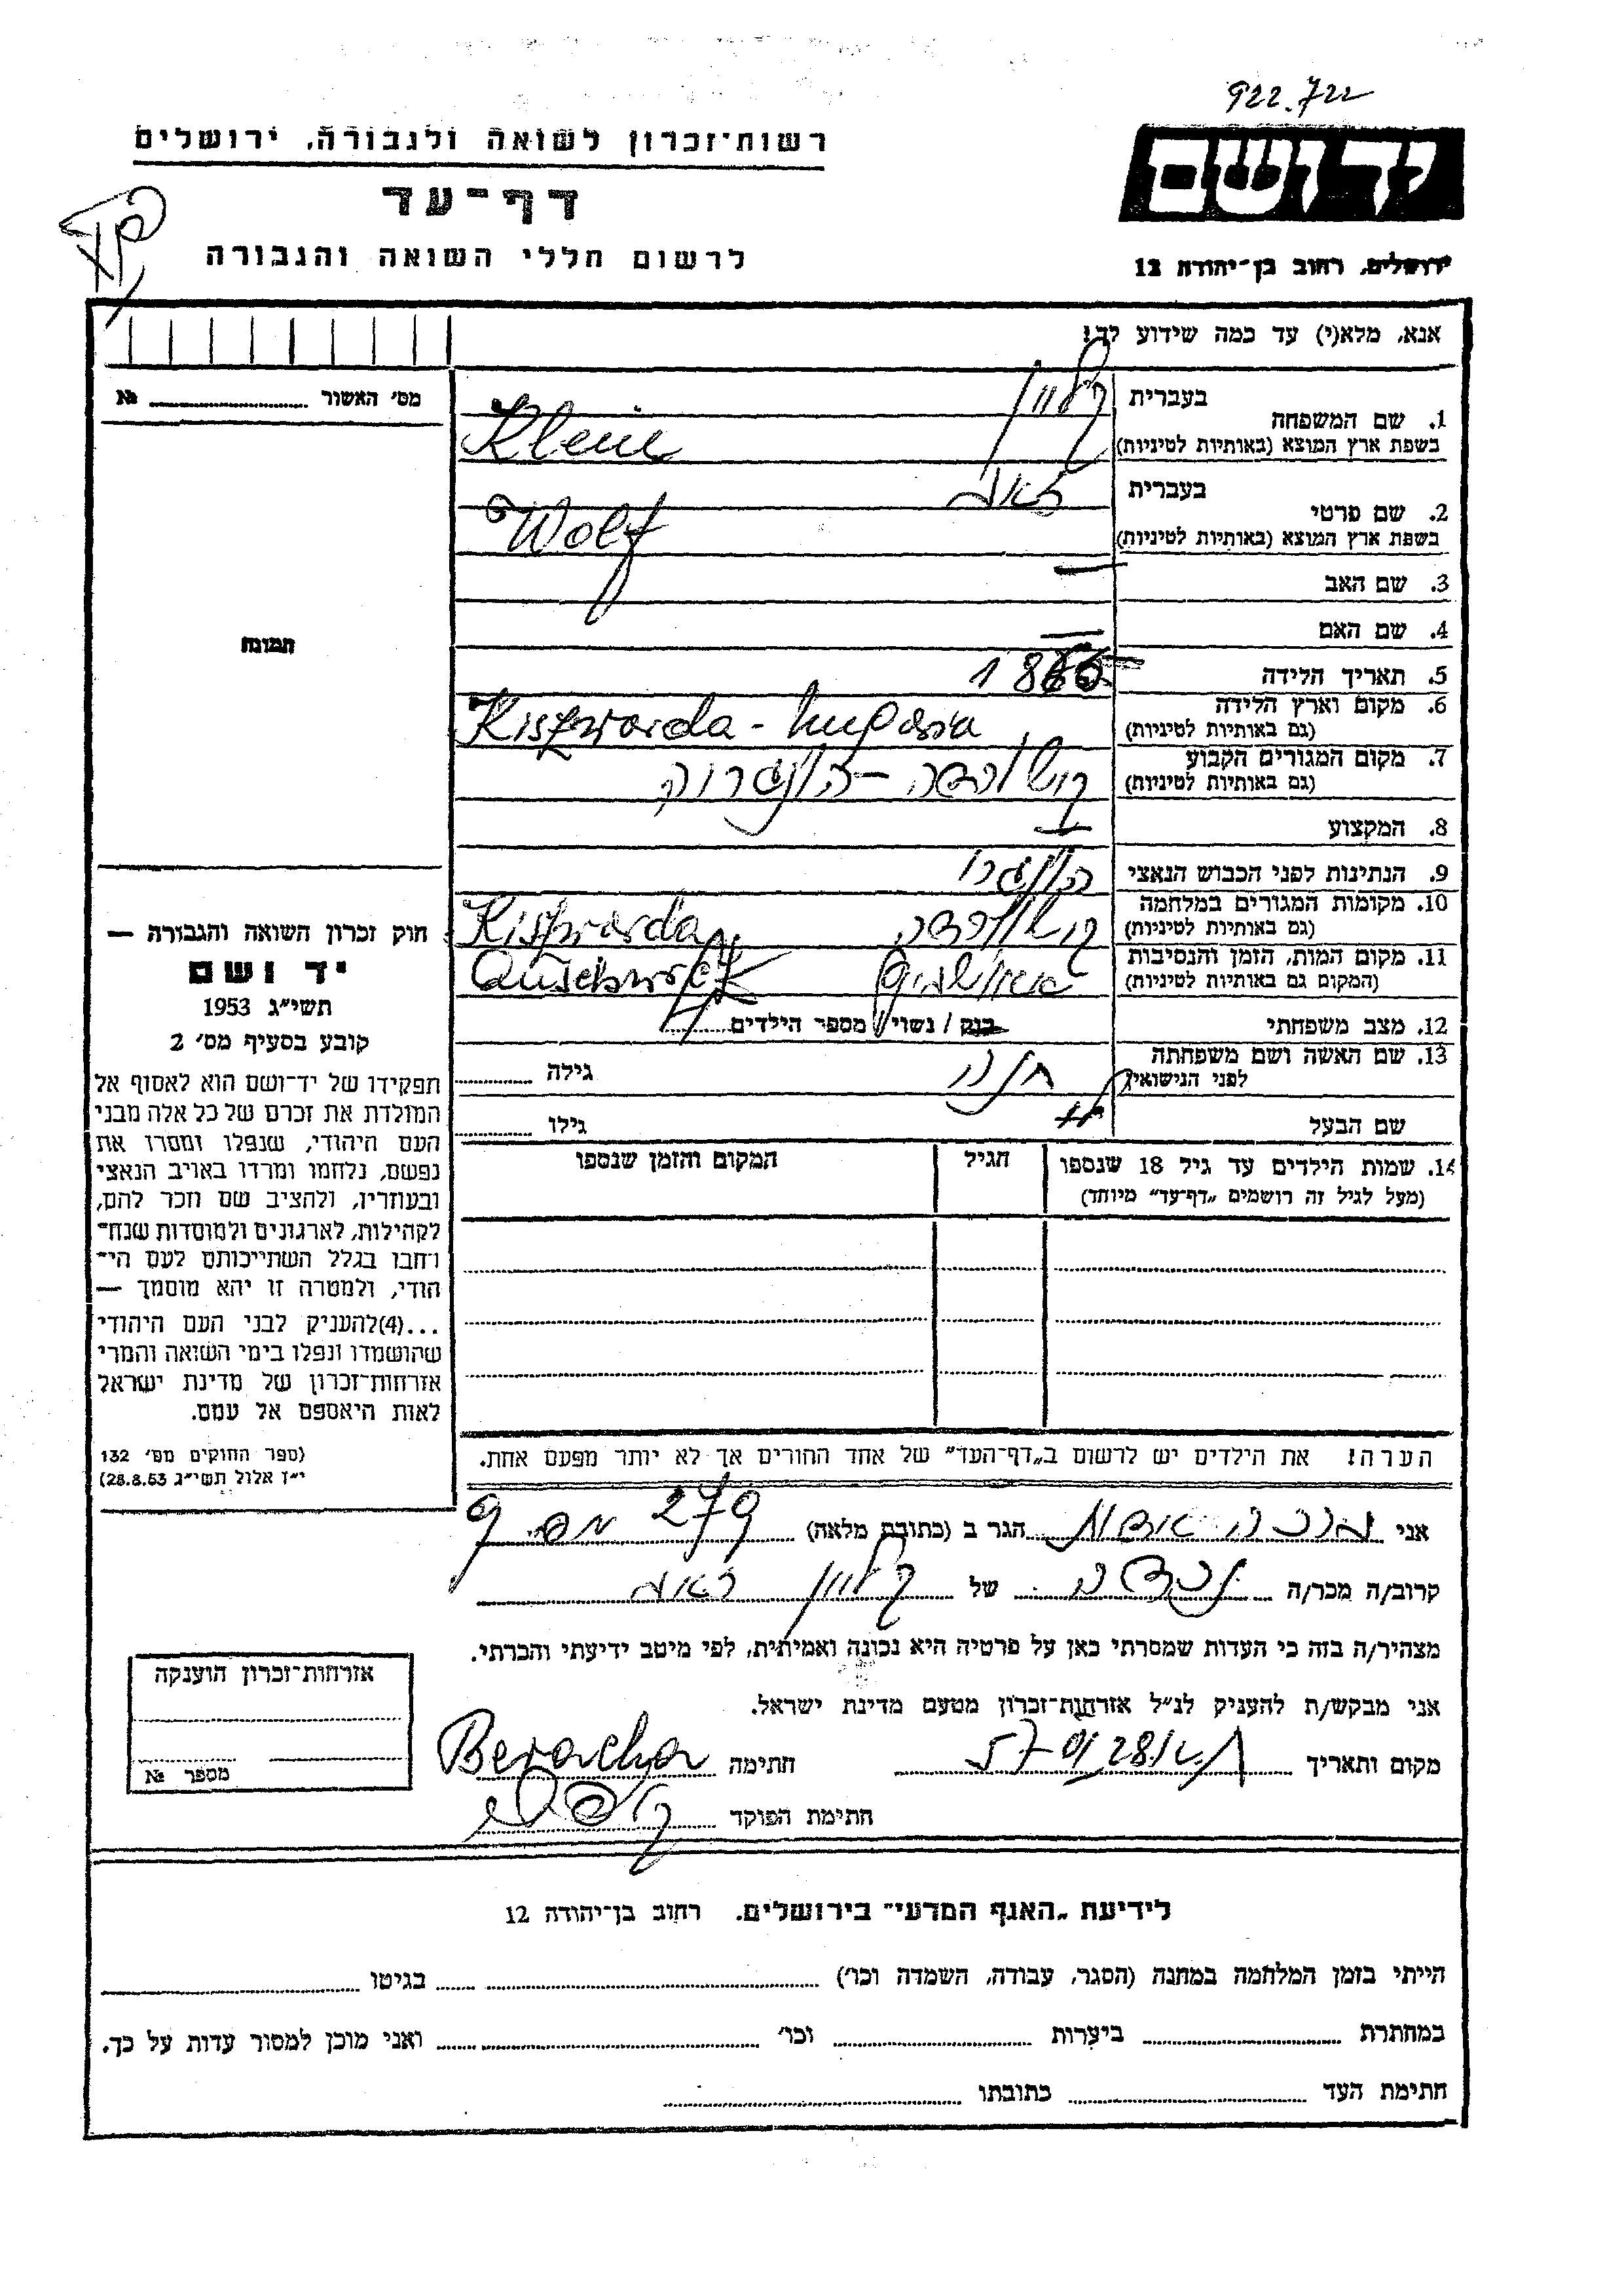 922.722
רשות־זכרון לשואה ולגבורה, ירושלים
יד ושם
דף־עד
לרשום חללי השואה והגבורה
ירושלים, רחוב בן־יהודה 12
אנא, מלא(י) עד כמה שידוע לך!
מס׳ האשור № 
1. שם המשפחה בעברית קליין
בשפת ארץ המוצא (באותיות לטיניות) Klein
2. שם פרטי בעברית
בשפת ארץ המוצא (באותיות לטיניות) Wolf
3. שם האב —
4. שם האם —
תמונה
5. תאריך הלידה
6. מקום וארץ הלידה
(גם באותיות לטיניות) Kiszwarda -
7. מקום המגורים הקבוע
(גם באותיות לטיניות)
8. המקצוע
9. הנתינות לפני הכבוש הנאצי
10. מקומות המגורים במלחמה
(גם באותיות לטיניות) Kiszwarda
11. מקום המות, הזמן והנסיבות
(המקום גם באותיות לטיניות)
12. מצב משפחתי רווק / נשוי / מספר הילדים
13. שם האשה ושם משפחתה
לפני הנישואין חנה גילה
שם הבעל גילו
14. שמות הילדים עד גיל 18 שנספו הגיל המקום והזמן שנספו
(מעל לגיל זה רושמים „דף־עד״ מיוחד)
חוק זכרון השואה והגבורה —
יד ושם
תשי״ג 1953
קובע בסעיף מס׳ 2
תפקידו של יד־ושם הוא לאסוף אל
המולדת את זכרם של כל אלה מבני
העם היהודי, שנפלו ומסרו את
נפשם, נלחמו ומרדו באויב הנאצי
ובעוזריו, ולהציב שם וזכר להם,
לקהילות, לארגונים ולמוסדות שנח־
רבו בגלל השתייכותם לעם הי־
הודי, ולמטרה זו יהא מוסמך —
...(4)להעניק לבני העם היהודי
שהושמדו ונפלו בימי השואה והמרי
אזרחות־זכרון של מדינת ישראל
לאות היאספם אל עמם.
(ספר החוקים מס׳ 132
י״ז אלול תשי״ג 28.8.53)
הערה! את הילדים יש לרשום ב„דף־העד״ של אחד ההורים אך לא יותר מפעם אחת.
אני ברכה הגר ב (כתובת מלאה)
קרוב/ה מכר/ה נכדה של קליין
מצהיר/ה בזה כי העדות שמסרתי כאן על פרטיה היא נכונה ואמיתית, לפי מיטב ידיעתי והכרתי.
אני מבקש/ת להעניק לנ״ל אזרחות־זכרון מטעם מדינת ישראל.
מקום ותאריך חתימה Beracha
חתימת הפוקד
אזרחות־זכרון הוענקה
מספר №
לידיעת „האגף המדעי״ בירושלים. רחוב בן־יהודה 12
הייתי בזמן המלחמה במחנה (הסגר, עבודה, השמדה וכו׳) בגיטו
במחתרת ביערות וכו׳ ואני מוכן למסור עדות על כך.
חתימת העד כתובתו